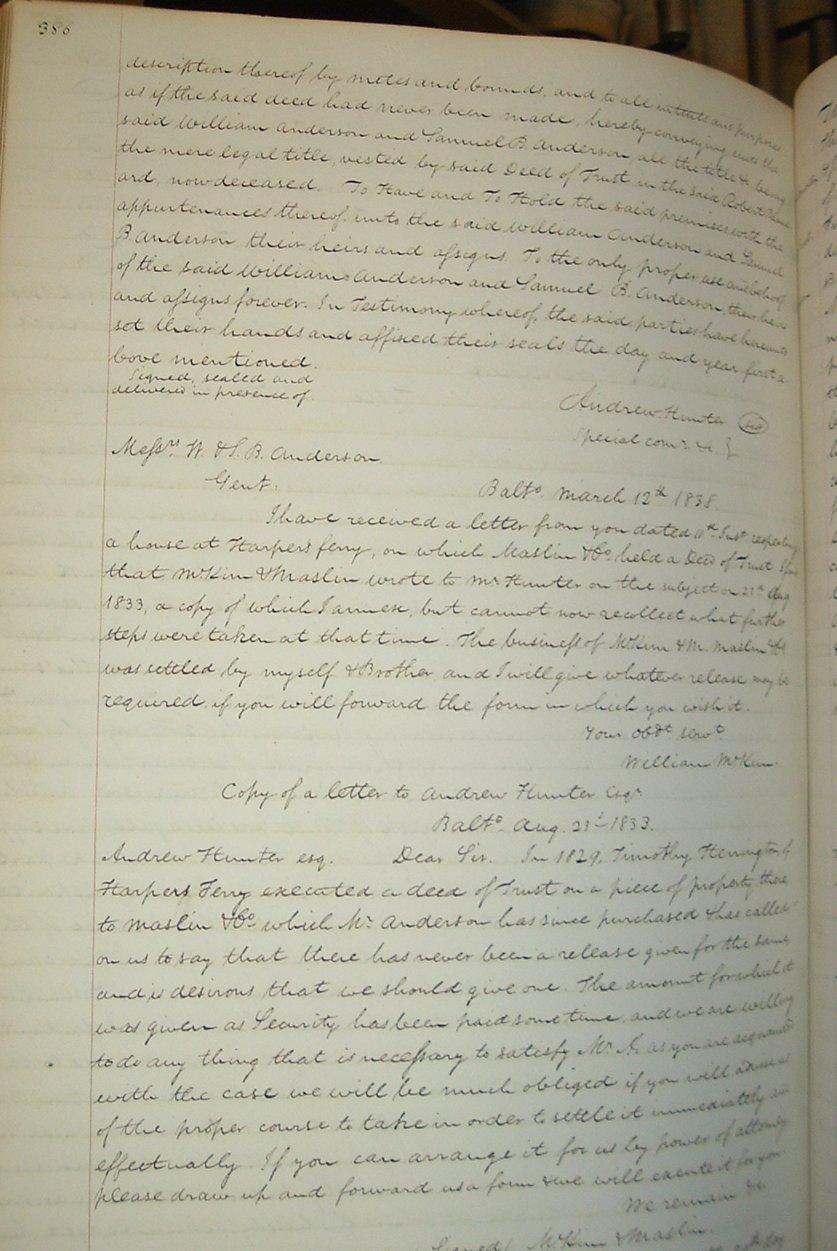 386
description thereof by metes and bounds, and to all intents and purposes
as if the said deed had never been made, hereby conveying unto the
said William Anderson and Samuel B. Anderson all the title & being
the mere legal title, vested by said Deed of Trust in the said Robert
ard, now deceased. To Have and To Hold the said premises with the
appurtenances thereof, unto the said William Anderson and Samuel
B Anderson, their heirs and assigns. To the only proper use and behoof
of the said William Anderson and Samuel B. Anderson, their heirs
and assigns forever. In Testimony whereof, the said parties have hereunto
set their hands and affixed their seals the day and year first a
bove mentioned.
Signed, sealed and
delivered in presence of.
Andrew Hunter
Special comr. &c. }
Messrs W. & S. B. Anderson.
Gent.
Balto. March 12th 1838.
I have received a letter from you dated 11th Inst respecting
a house at Harpers ferry, on which Maslin & Co. held a Deed of Trust I find
that McKim & Maslin wrote to Mr Hunter on the subject on 23d Aug
1833, a copy of which I annex, but cannot now recollect what further
steps were taken at that time. The business of McKim & M. Maslin & Co
was settled by myself & Brother, and I will give whatever release may be
required, if you will forward the form in which you wish it.
Your obdt. servt.
William McKim.
Copy of a letter to Andrew Hunter Esqr.
Balto. Aug. 23d 1833.
Andrew Hunter esq. Dear Sir. In 1829, Timothy Herrington of
Harpers Ferry executed a deed of Trust on a piece of property there
to Maslin & Co. which Mr. Anderson has since purchased & has called
on us to say that there has never been a release given for the same
and is desirous that we should give one. The amount for which it
was given as Security has been paid some time, and we are willing
to do any thing that is necessary to satisfy Mr A. as you are acquainted
with the case we will be much obliged if you will advise us
of the proper course to take in order to settle it immediately and
effectually. If you can arrange it for us by power of attorney
please draw up and forward us a form & we will execute it for you
We remain &c
Signed/ McKim & Maslin.